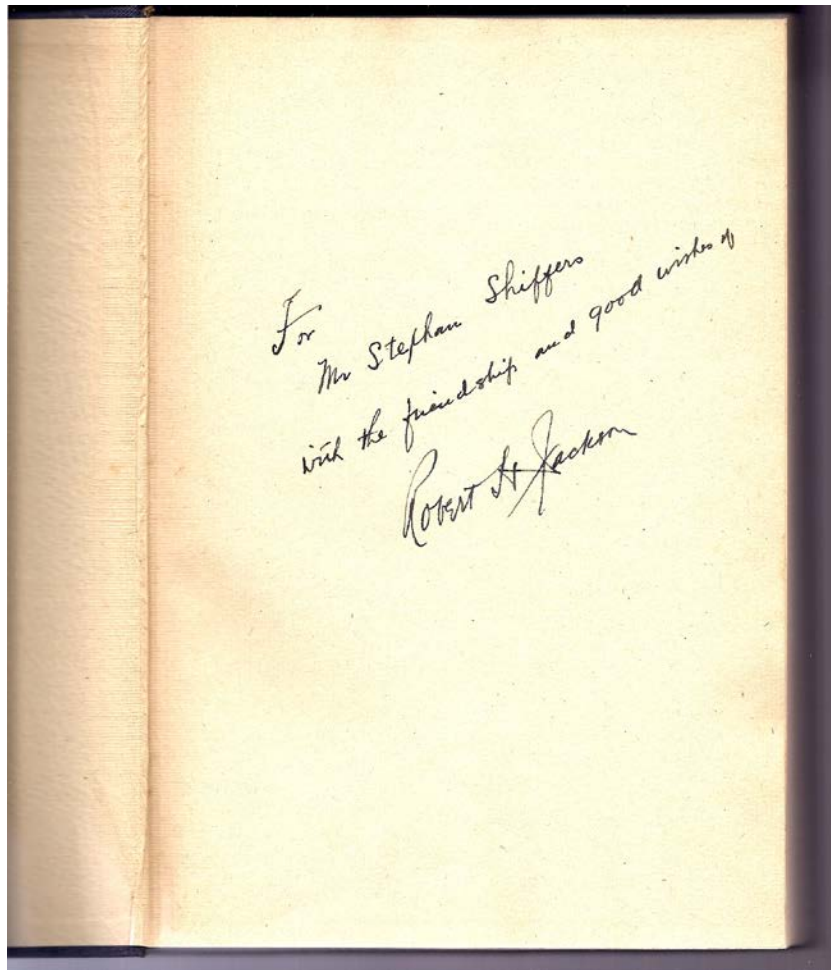 For
Mr Stephan Shiffers
with the friendship and good wishes of
Robert H Jackson